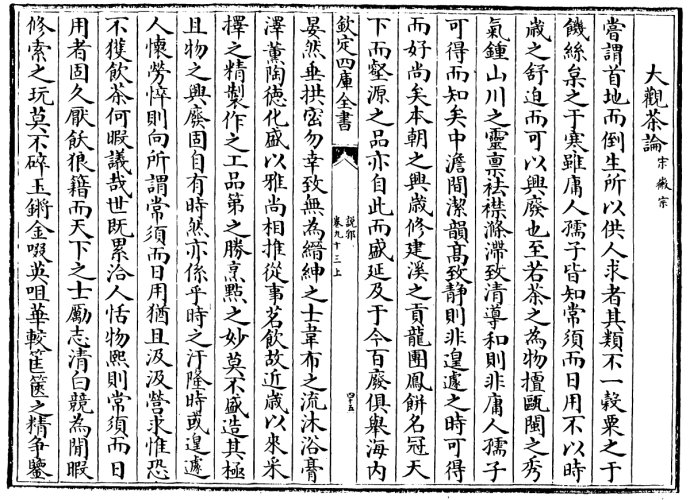 大觀茶論 宋徽宗
嘗謂首地而倒生所以供人求者其類不一穀粟之于
饑絲枲之于寒雖庸人孺子皆知常須而日用不以時
歲之舒迫而可以興廢也至若茶之為物擅甌閩之秀
氣鍾山川之靈禀祛襟滌滯致清導和則非庸人孺子
可得而知矣中澹間潔韻髙致静則非遑遽之時可得
而好尚矣本朝之興歲修建溪之貢龍團鳳餅名冠天
下而壑源之品亦自此而盛延及于今百廢俱舉海内
欽定四庫全書
說郛
卷九十三上
四五
晏然垂拱宻勿幸致無為縉紳之士韋布之流沐浴膏
澤薰陶徳化盛以雅尚相推從事茗飲故近歲以來采
擇之精製作之工品第之勝烹點之妙莫不盛造其極
且物之興廢固自有時然亦係乎時之汙隆時或遑遽
人懐勞悴則向所謂常須而日用猶且汲汲營求惟恐
不獲飲茶何暇議哉世既累洽人恬物熙則常須而日
用者固久厭飫狼籍而天下之士勵志清白競為閒暇
修索之玩莫不碎玉鏘金啜英咀華較筐篋之精争鑒